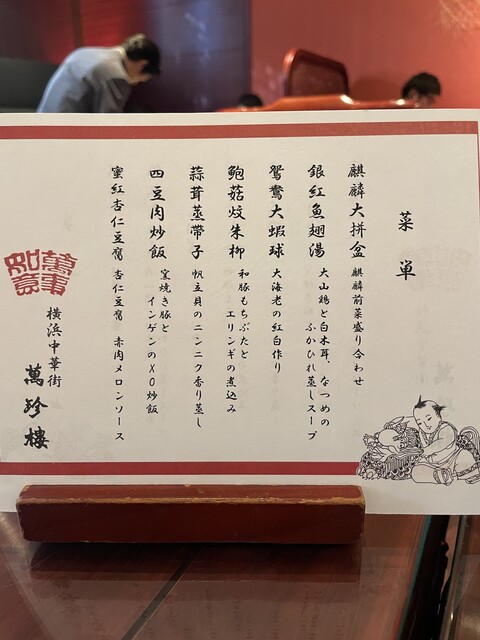 菜単
麒麟大拼盆 麒麟前菜盛り合わせ
銀紅魚翅湯 大山鶏と白木耳、なつめの
ふかひれ蒸しスープ
鴛鴦大蝦球 大海老の紅白作り
鮑菇炆朱柳 和豚もちぶたと
エリンギの煮込み
蒜茸蒸帶子 帆立貝のニンニク香り蒸し
四豆肉炒飯 窯焼き豚と
インゲンのXO炒飯
蜜紅杏仁豆腐 杏仁豆腐 赤肉メロンソース
萬事
如意
横浜中華街
萬珍樓